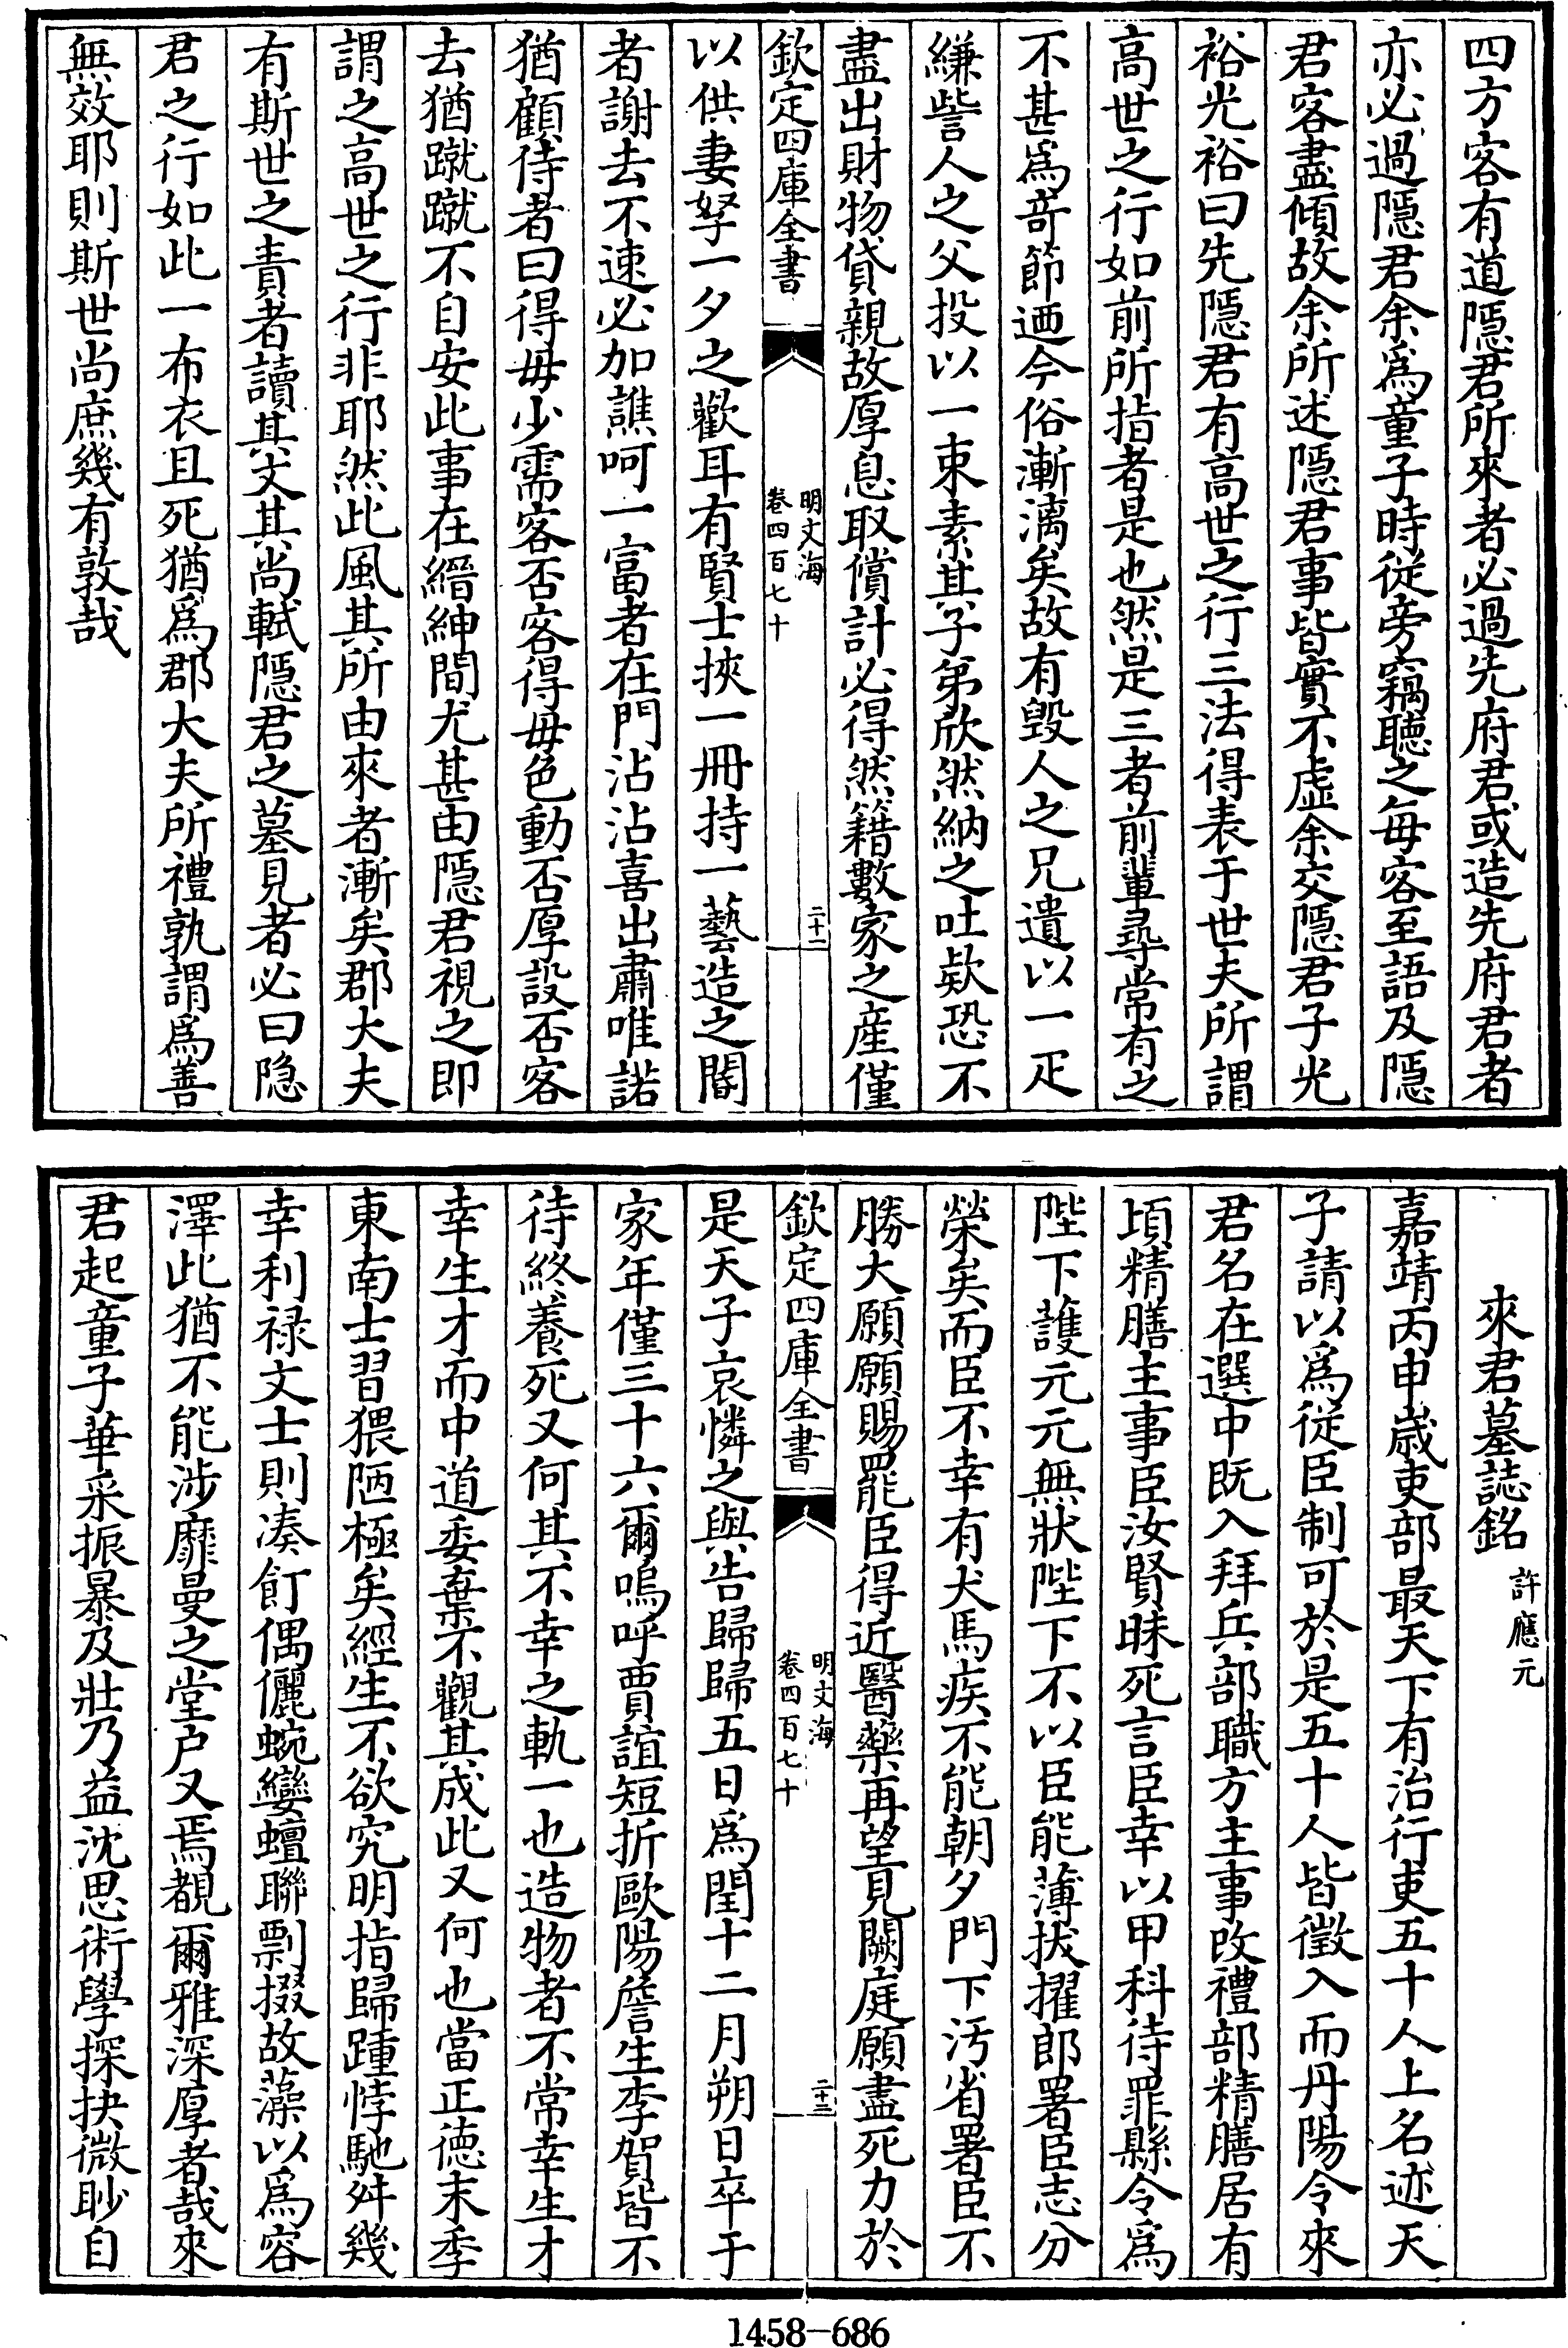 四方客有道隱君所來者必過先府君或造先府君者
亦必過隱君余爲童子時從旁竊聽之每客至語及隱
君客盡傾故余所述隱君事皆實不虛余交隱君子光
裕光裕曰先隱君有高世之行三法得表于世夫所謂
高世之行如前所指者是也然是三者前輩尋常有之
不甚爲奇節迺今俗漸漓矣故有毀人之兄遺以一疋
縑訾人之父投以一束素其子弟欣然納之吐欵恐不
盡出財物貸親故厚息取償計必得然籍數家之産僅
欽定四庫全書
明文海
卷四百七十
二十一
以供妻孥一夕之歡耳有賢士挾一冊持一藝造之閽
者謝去不速必加譙呵一富者在門沾沾喜出肅唯諾
猶顧侍者曰得毋少需客否客得毋色動否厚設否客
去猶蹴蹴不自安此事在縉紳間尤甚由隱君視之即
謂之高世之行非耶然此風其所由來者漸矣郡大夫
有斯世之責者讀其文其尚軾隱君之墓見者必曰隐
君之行如此一布衣且死猶爲郡大夫所禮孰謂爲善
無效耶則斯世尚庶幾有敦哉
來君墓誌銘
許應元
嘉靖丙申歲吏部最天下有治行吏五十人上名迹天
子請以爲從臣制可於是五十人皆徵入而丹陽令來
君名在選中既入拜兵部職方主事改禮部精膳居有
頃精膳主事臣汝賢昧死言臣幸以甲科待罪縣令爲
陛下護元元無狀陛下不以臣能薄拔擢郎署臣志分
榮矣而臣不幸有犬馬疾不能朝夕門下汚省署臣不
勝大願願賜罷臣得近醫藥再望見闕庭願盡死力於
欽定四庫全書
明文海
卷四百七十
二十二
是天子哀憐之與告歸歸五日爲閏十二月朔日卒于
家年僅三十六爾嗚呼賈誼短折歐陽詹生李賀皆不
待終養死又何其不幸之軌一也造物者不常幸生才
幸生才而中道委棄不觀其成此又何也當正德末季
東南士習猥陋極矣經生不欲究明指歸踵悖馳舛幾
幸利禄文士則湊飣偶儷蜿㜻蟺聯剽掇故藻以爲容
澤此猶不能涉靡曼之堂户又焉覩爾雅深厚者哉來
君起童子華采振暴及壯乃益沈思術學探抉微眇自
1458-686